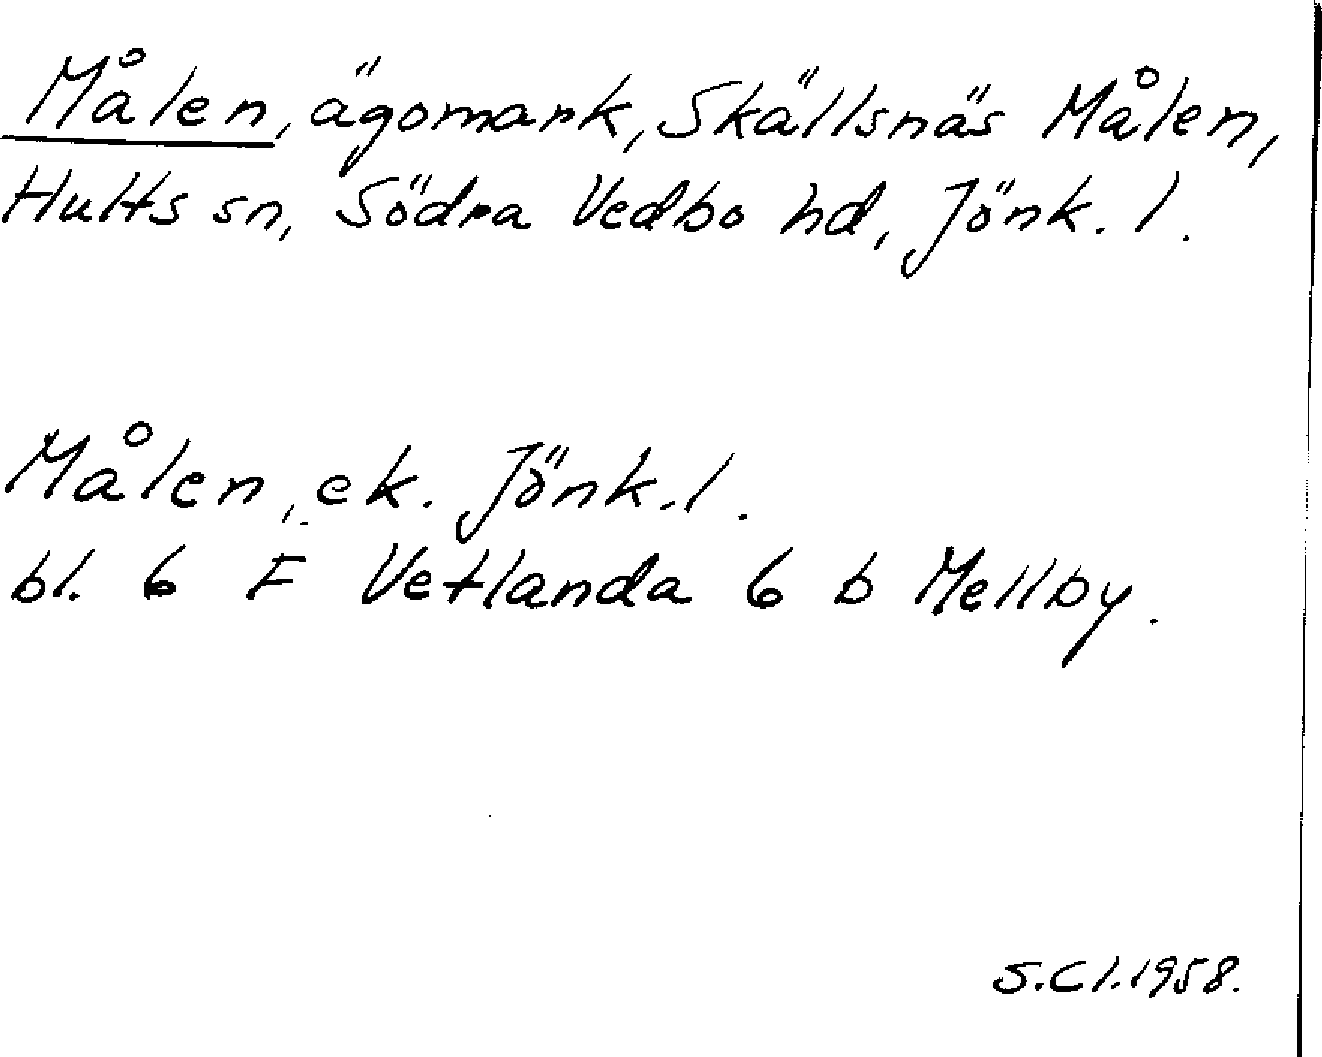 Målen, ägomark, Skällsnäs Målen,
Hults sn, Södra Vedbo hd, Jönk. l.
Målen, ek. Jönk. l.
bl. 6 F Vetlanda 6 b Mellby.
S. Cl. 1958.